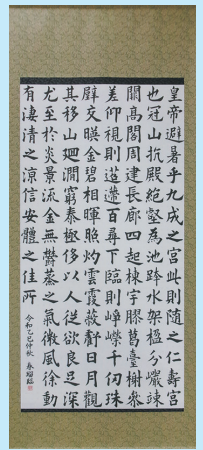 皇帝避暑乎九成之宮此則隨之仁壽宮
也冠山抗殿絶壑為池跨水架楹分巖竦
闕高閣周建長廊四起棟宇膠葛臺榭參
差仰視則迢遰百尋下臨則崢嶸千仞珠
壁交暎金碧相暉照灼雲霞蔽虧日月觀
其移山廻澗窮泰極侈以人從欲良足深
尤至於炎景流金無鬱蒸之氣微風徐動
有淒清之涼信安體之佳所
令和乙巳仲秋 春 臨